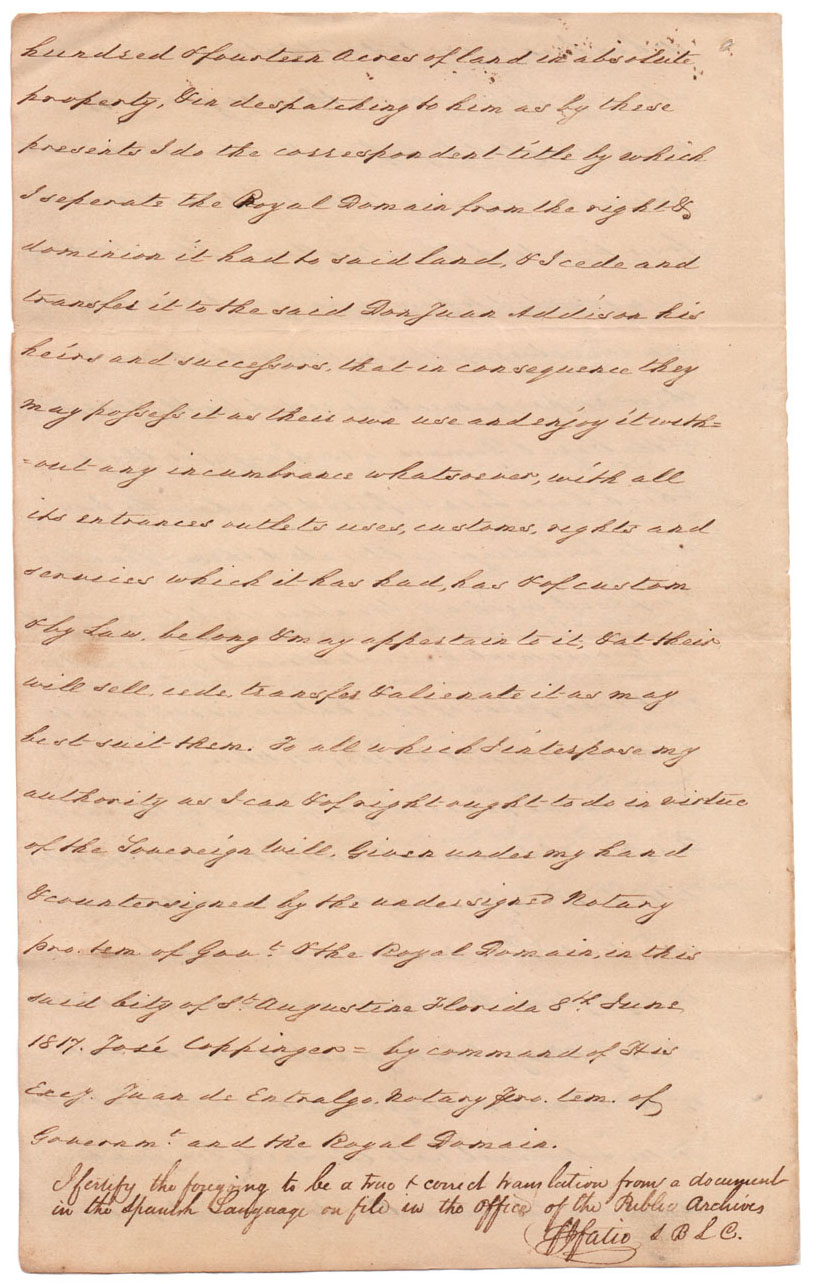 hundred & fourteen Acres of land in absolute
property, & in despatching to him as by these
presents I do the correspondent title by which
I seperate the Royal Domain from the right &
dominion it had to said land, & I cede and
transfer it to the said Don Juan Addison his
heirs and successors, that in consequence they
may possess it as their own use and enjoy it with=
=out any incumbrance whatsoever, with all
its entrances outlets uses, customs, rights and
services which it has had, has & of custom
& by Law, belong & may appertain to it, & at their
will sell, cede, transfer & alienate it as may
best suit them. To all which I interpose my
authority as I can & of right ought to do in virtue
of the Sovereign Will. Given under my hand
& countersigned by the undersigned Notary
pro. tem. of Govt. & the Royal Domain, in this
said City of St. Augustine Florida 8th June
1817. José Coppinger = by command of His
Excy. Juan de Entralgo. Notary pro. tem. of
Governmt. and the Royal Domain.
I certify the foregoing to be a true & correct translation from a document
in the Spanish Language on file in the office of the Public Archives
Fatio S B L C.